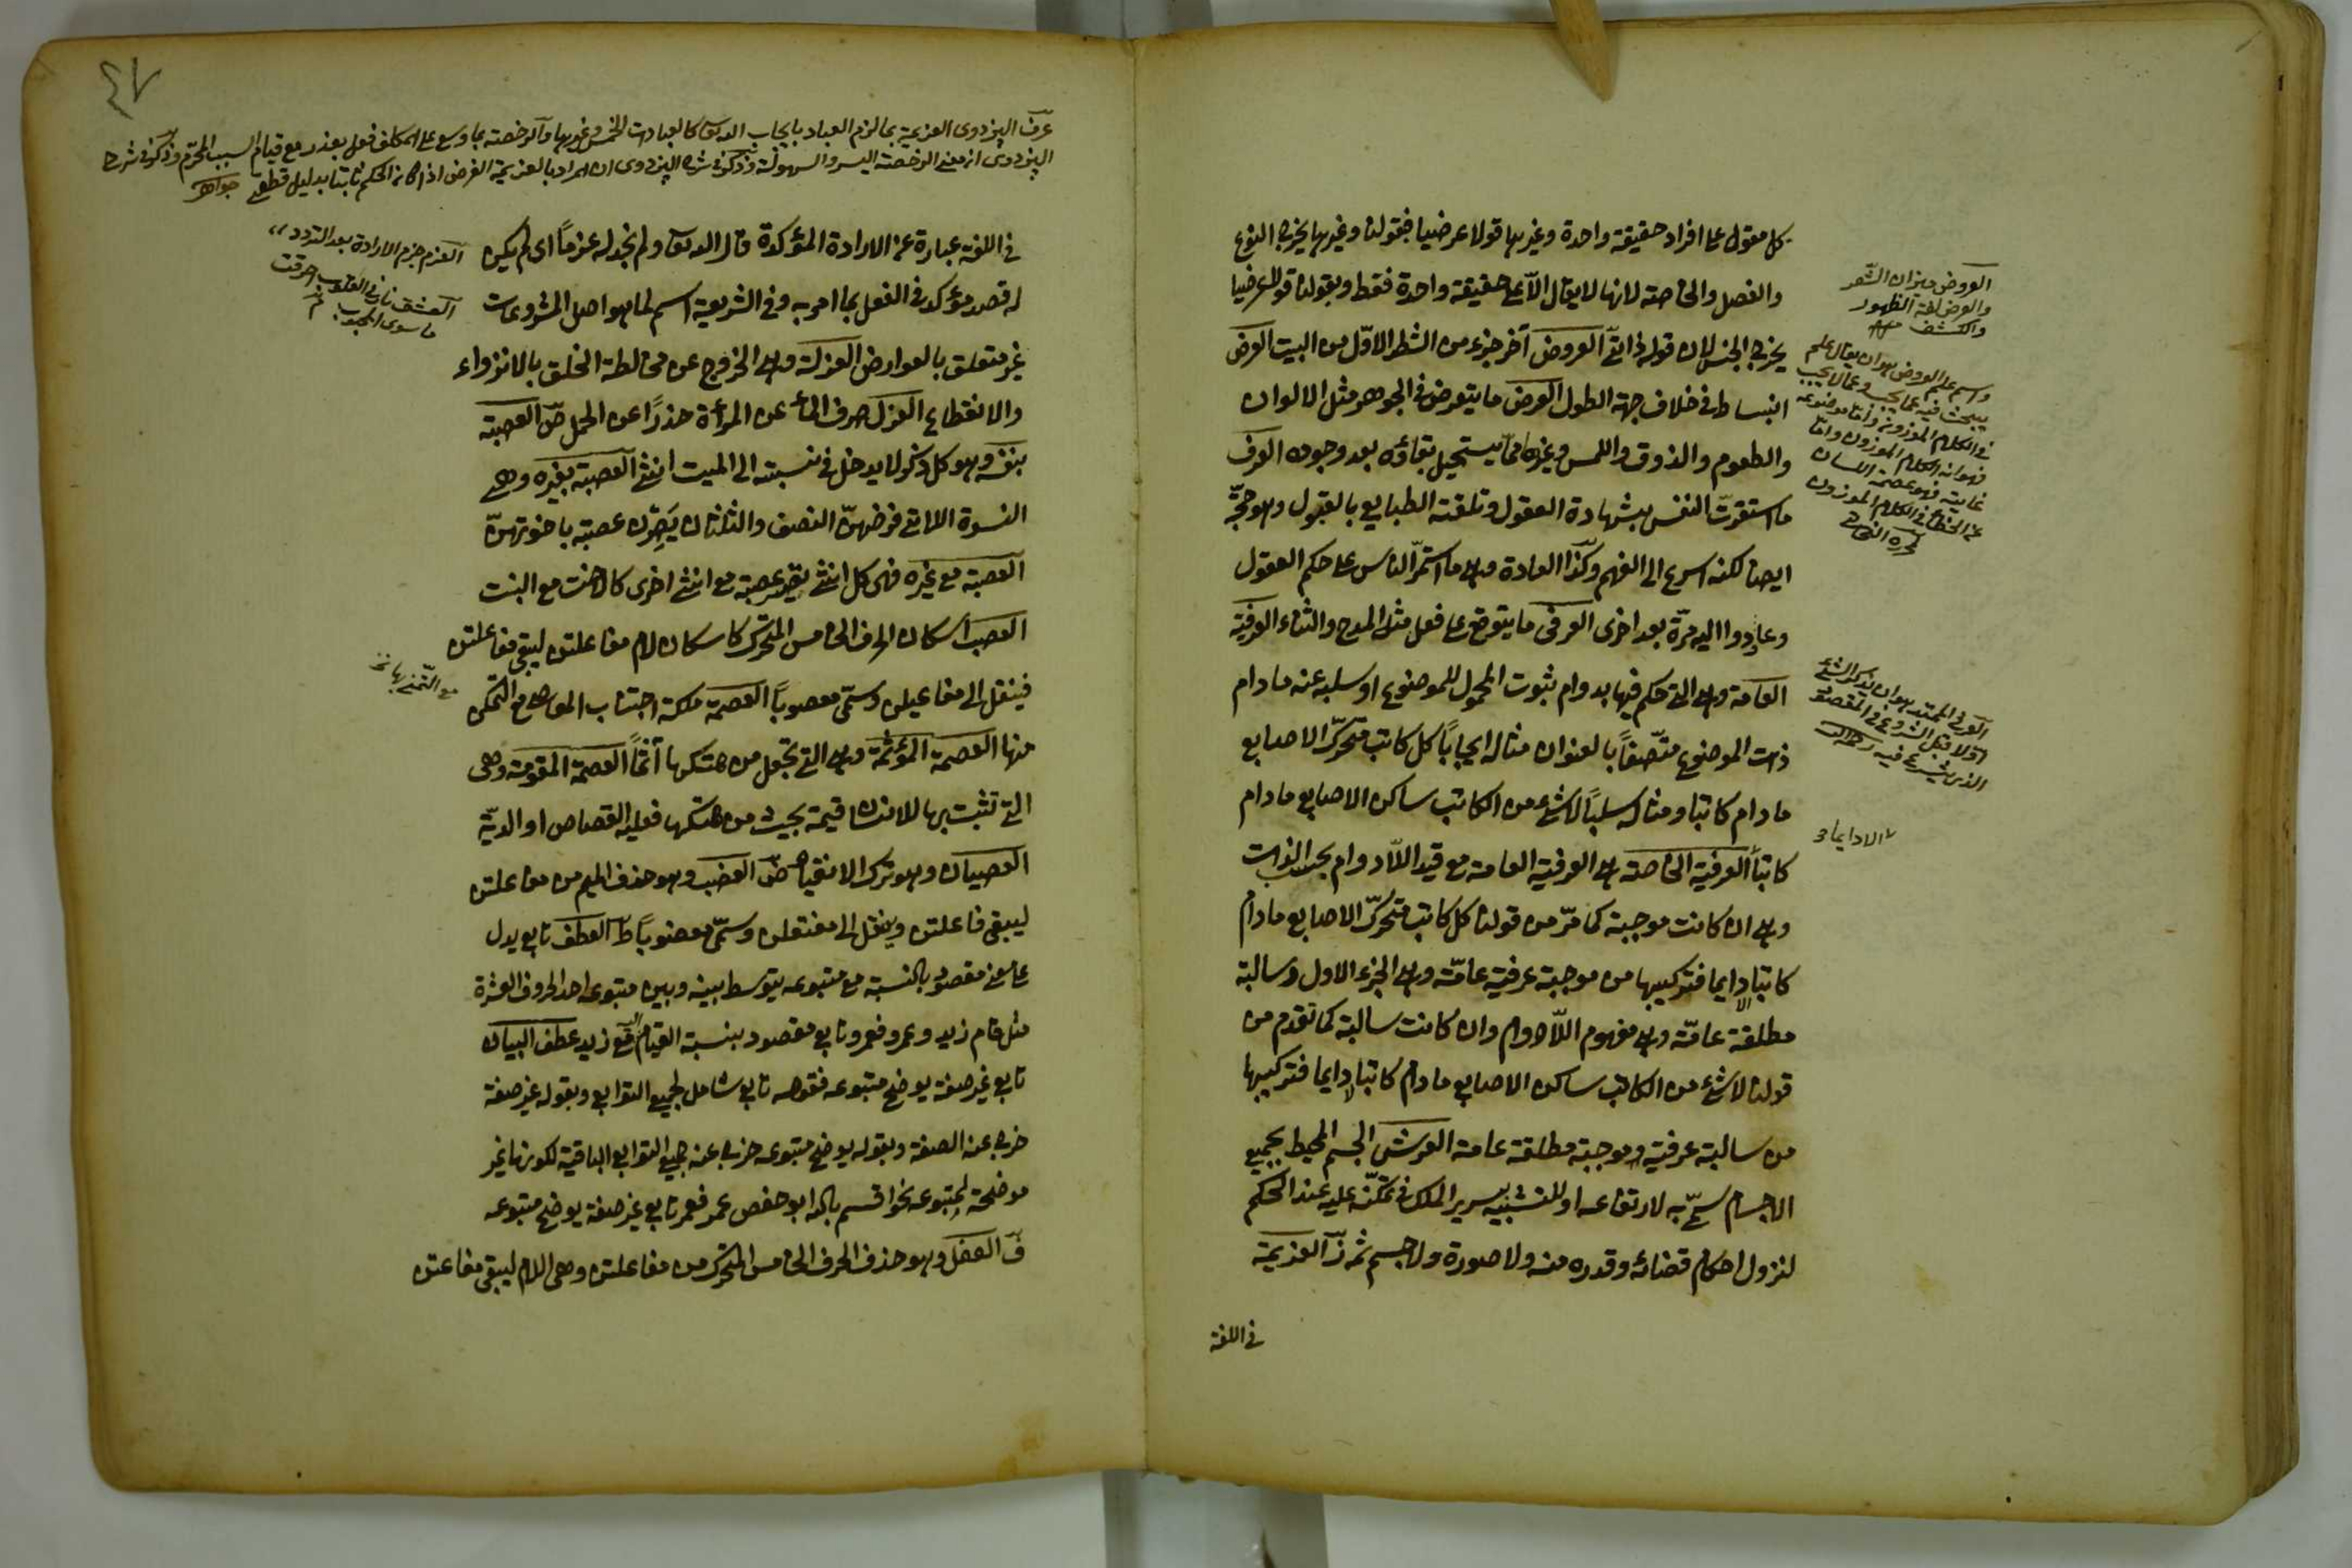 كل مقول على افراد حقيقة واحدة وغيرها قولا عرضيا فبقولنا وغيرها يخرج النوع
والفصل والخاصة لانها لا يقال الا على حقيقة واحدة فقط وبقولنا قولا عرضيا
يخرج الجنس لان قوله ذاتى العروض آخر جزء من الشطر الاول من البيت العرض
انبساط فى خلاف جهة الطول العرض ما يتعرض فى الجوهر مثل الالوان
والطعوم والذوق واللمس وغيره مما يستحيل بقاؤه بعد وجوده العرف
ما استقرت النفس بشهادة العقول وتلقته الطبايع بالقبول وهو حجة
ايضا لكنه اسرع الى الفهم وكذا العادة وهى ما استمر الناس على حكم العقول
وعادوا اليه مرة بعد اخرى العرفى ما يتوقع على فعل مثل المدح والثناء العرفية
العامة وهى التى حكم فيها بدوام ثبوت المحمول للموضوع او سلبه عنه ما دام
ذات الموضوع متصفا بالعنوان مثاله ايجابا كل كاتب متحرك الاصابع
ما دام كاتبا ومثاله سلبا لا شئ من الكاتب ساكن الاصابع ما دام
كاتبا العرفية الخاصة هى العرفية العامة مع قيد اللادوام بحسب الذات
وهى ان كانت موجبة كما مر من قولنا كل كاتب متحرك الاصابع ما دام
كاتبا لا دايما فتركيبها من موجبة عرفية عامة وهى الجزء الاول وسالبة
مطلقة عامة وهى مفهوم اللادوام وان كانت سالبة كما تقدم من
قولنا لا شئ من الكاتب ساكن الاصابع ما دام كاتبا لا دايما فتركيبها
من سالبة عرفية وموجبة مطلقة عامة العرش الجسم المحيط بجميع
الاجسام سمى به لارتفاعه او للتشبيه بسرير الملك فى تمكنه عليه عند الحكم
لنزول احكام قضائه وقدره منه ولا صورة ولا جسم ثمه ز العزيمة
فى اللغة
العروض ميزان الشعر
والعرض لغة الظهور
والكشف
واسم علم العروض هو ان يقال علم
يبحث فيه عما يجب وعما لا يجب
فى الكلام الموزون واما موضوعه
فهو انه الكلام الموزون واما
غايته فهو عصمة اللسان
عن الخطأ فى الكلام الموزون
العرفى الممتد هو ان يذكر الشئ
اولا قبل الشروع فى المقصود
الذى يشرع فيه
لا دايما
٤٧
عرف البزدوى العزيمة بما لزم العباد بايجاب الله تعالى كالعبادات الخمس وغيرها والرخصة بما وسع على المكلف فعله بعذر مع قيام السبب المحرم وذكر فى شرح
البزدوى ان معنى الرخصة اليسر والسهولة وذكر فى شرح البزدوى ان المراد بالعزيمة الفرض اذا كان الحكم ثابتا بدليل قطعى جواهر
فى اللغة عبارة عن الارادة المؤكدة قال الله تعالى ولم نجد له عزما اى لم يكن
له قصد مؤكد فى الفعل بما امر به وفى الشريعة اسم لما هو اصل المشروعات
غير متعلق بالعوارض العزلة وهى الخروج عن مخالطة الخلق بالانزواء
والانقطاع العزل صرف الماء عن المرأة حذرا عن الحمل ص العصبة
بنفسه وهو كل ذكر لا يدخل فى نسبته الى الميت انثى العصبة بغيره وهى
النسوة اللاتى فرضهن النصف والثلثان يصرن عصبة باخوتهن
العصبة مع غيره فهى كل انثى يصير عصبة مع انثى اخرى كالاخت مع البنت
العصب اسكان الحرف الخامس المتحرك كاسكان لام مفاعلتن ليبقى مفاعلتن
فينقل الى مفاعيلن وسمى معصوبا العصمة ملكة اجتناب المعاصى مع التمكن
منها العصمة المؤثمة وهى التى تجعل من هتكها آثما العصمة المقومة وهى
التى تثبت بها للانسان قيمة بحيث من هتكها فعليه القصاص او الدية
العصيان وهو ترك الانقياد ض العضب وهو حذف الميم من مفاعلتن
ليبقى فاعلتن وينقل الى مفتعلن وسمى معضوبا ط العطف تابع يدل
على معنى مقصود بالنسبة مع متبوعه يتوسط بينه وبين متبوعه احد الحروف العشرة
مثل قام زيد وعمرو فعمرو تابع مقصود بنسبة القيام اليه مع زيد عطف البيان
تابع غير صفة يوضح متبوعه فقوله تابع شامل لجميع التوابع وبقوله غير صفة
خرج عنه الصفة وبقوله يوضح متبوعه خرج عنه جميع التوابع الباقية لكونها غير
موضحة لمتبوعه نحو اقسم بالله ابو حفص عمر فعمر تابع غير صفة يوضح متبوعه
ف العقل وهو حذف الحرف الخامس المتحرك من مفاعلتن وهى اللام ليبقى مفاعتن
العزم جزم الارادة بعد التردد
العشق نار فى القلوب احرقت
ما سوى المحبوب